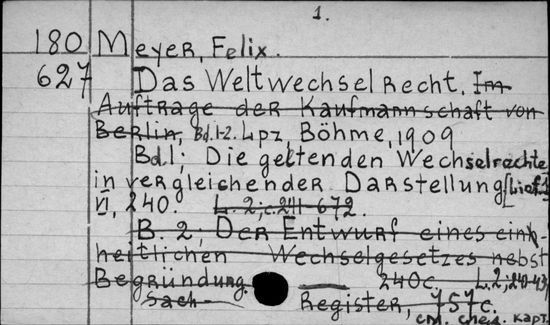 1.
180 Meyer, Felix.
627 Das Weltwechselrecht. Im
Auftrage der Kaufmannschaft von
Berlin, Bd.1-2. Lpz, Böhme, 1909
Bd.1; Die geltenden Wechselrechte
in vergleichender Darstellung [Lief.1
VI, 240. L.2; c.241-672.
B. 2; Der Entwurf eines einh-
heitlichen Wechselgesetzes nebst
Begründung. 240c. L.2; 240-43
Sach- Register, 757c.
см. след. карт.